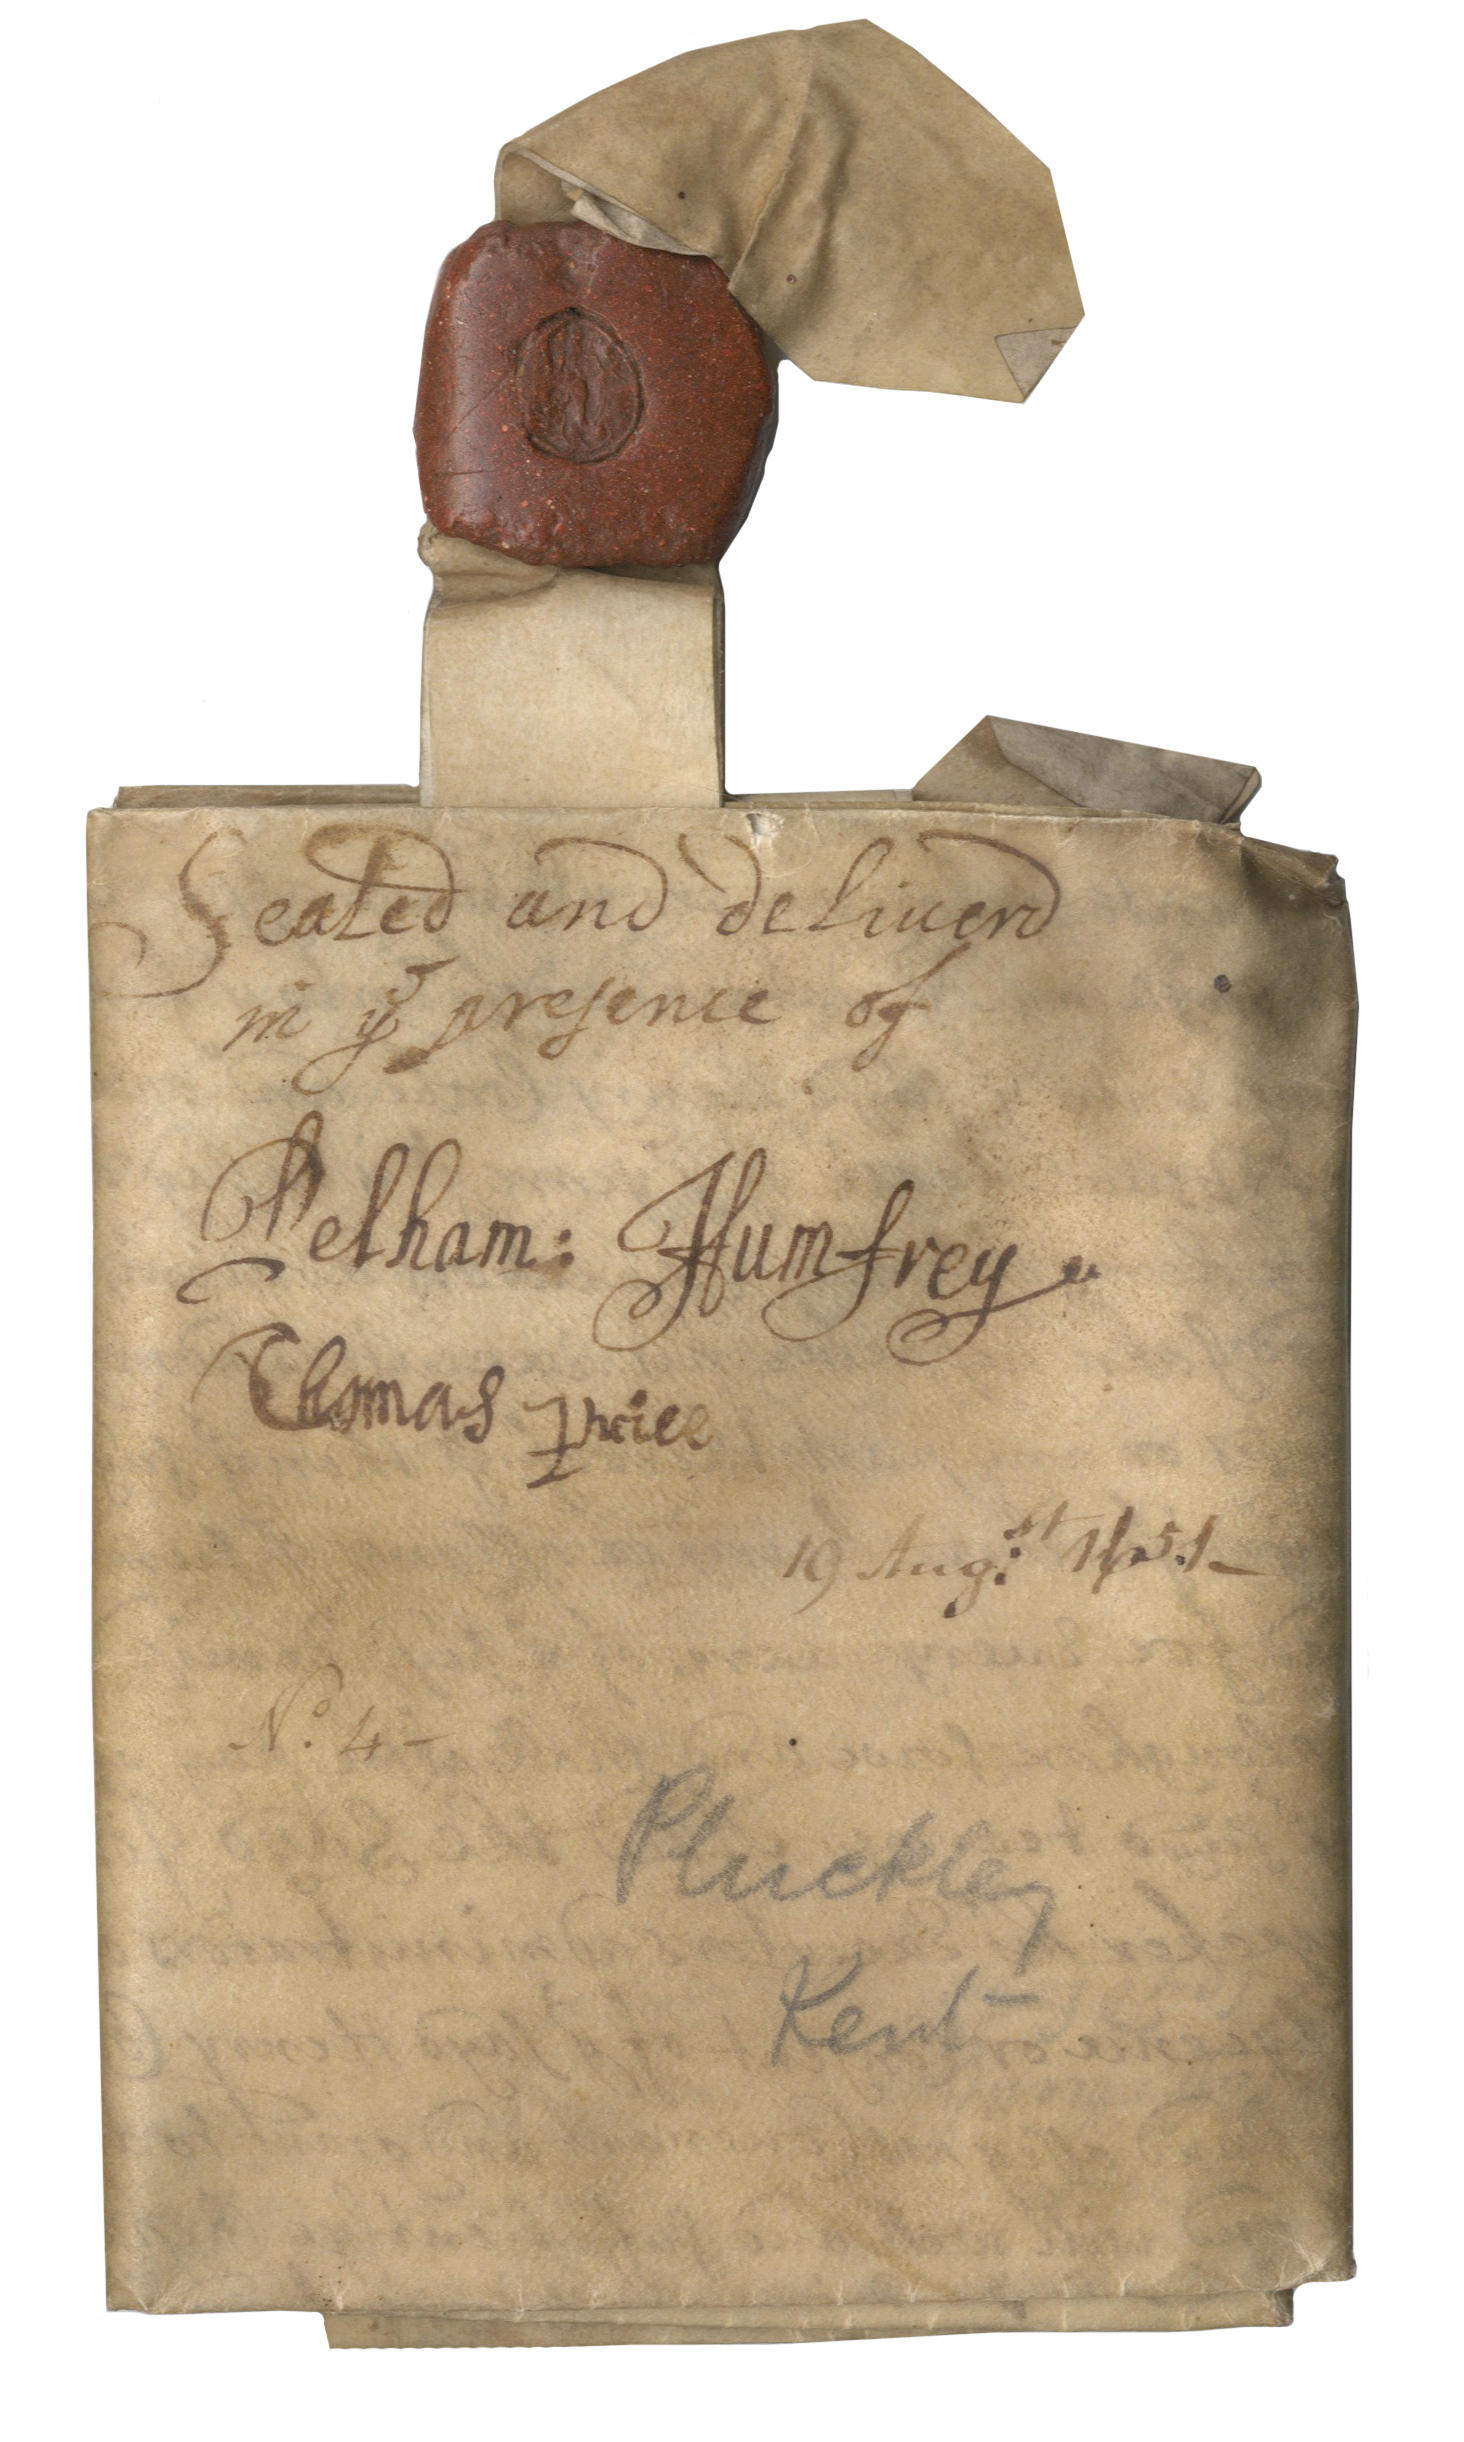 Sealed and deliuerd
in ye presence of
Pelham: Humfrey
Thomas price
19 Aug:st
No. 4-
Pluckley
Kent